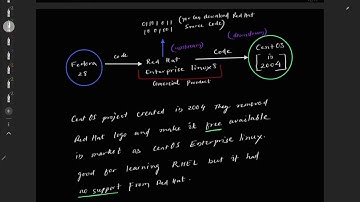 01101011 (you can download Red Hat
10 01001 Source Code)
(upstream)
(downstream)
Code
Code
Fedora
28
Red Hat
Enterprise linux8
Comercial Product
CentOS
in
2004
Cent OS project created in 2004 They removed
Red Hat logo and make it free available
in market as Cent OS Enterprise linux.
good for learning RHEL but it had
no support From Red Hat.